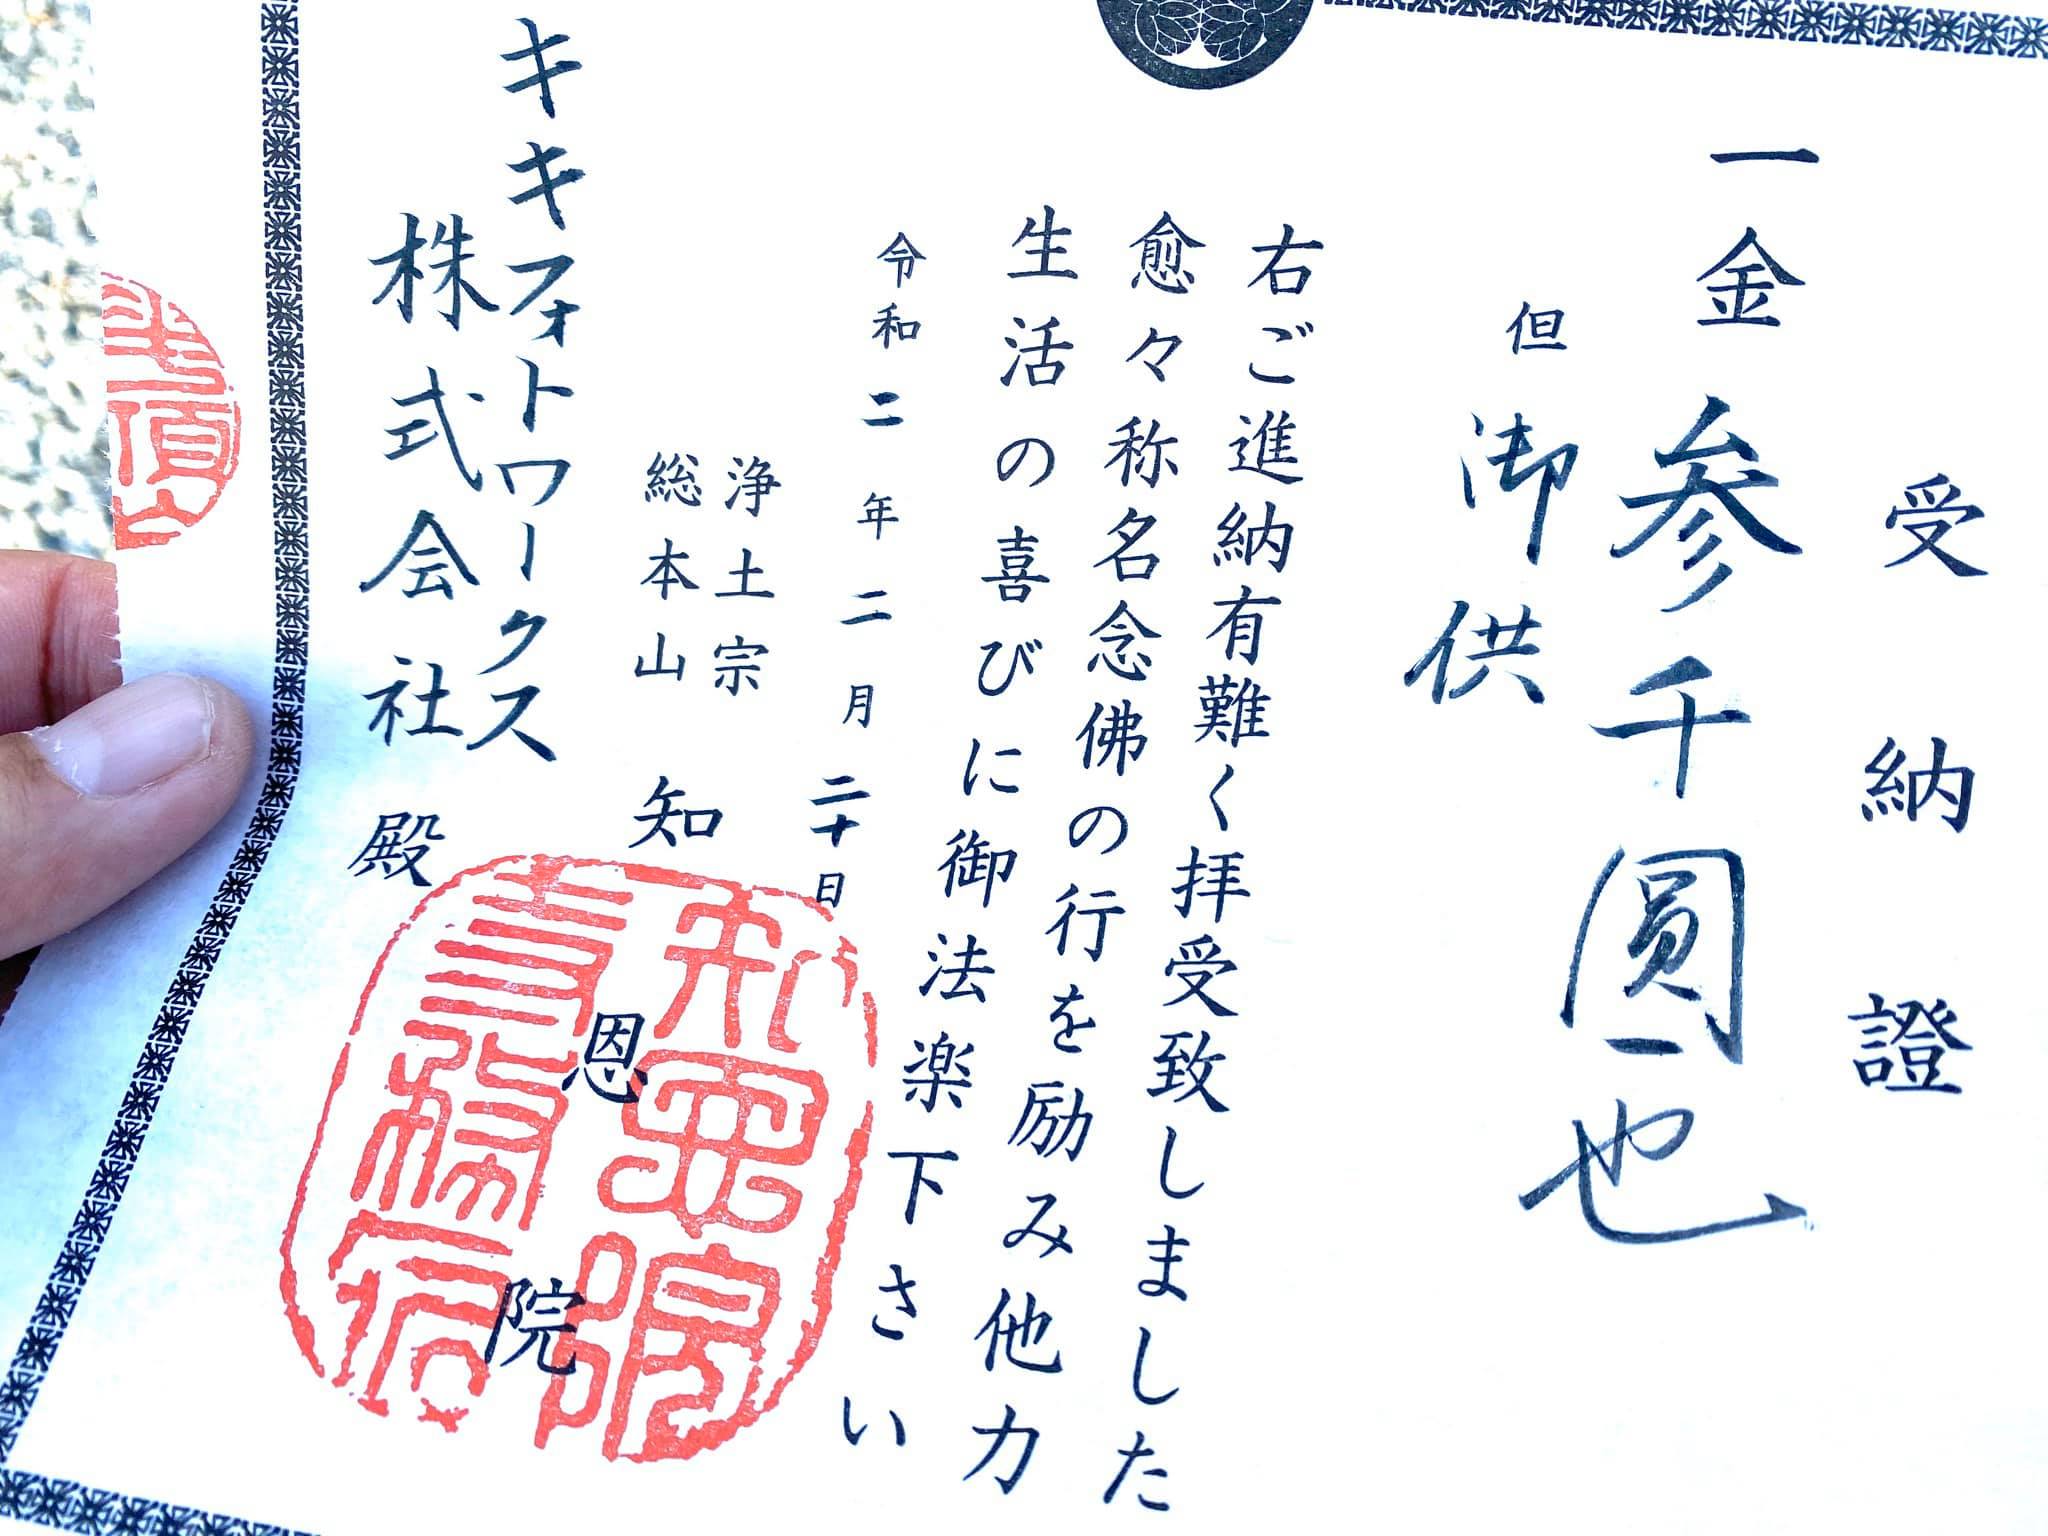 受納證
一金 参千圓也
但 御供
右ご進納有難く拝受致しました
愈々称名念佛の行を励み他力
生活の喜びに御法楽下さい
令和二年二月二十日
浄土宗
総本山
知恩院
キキフォトワークス
株式会社 殿